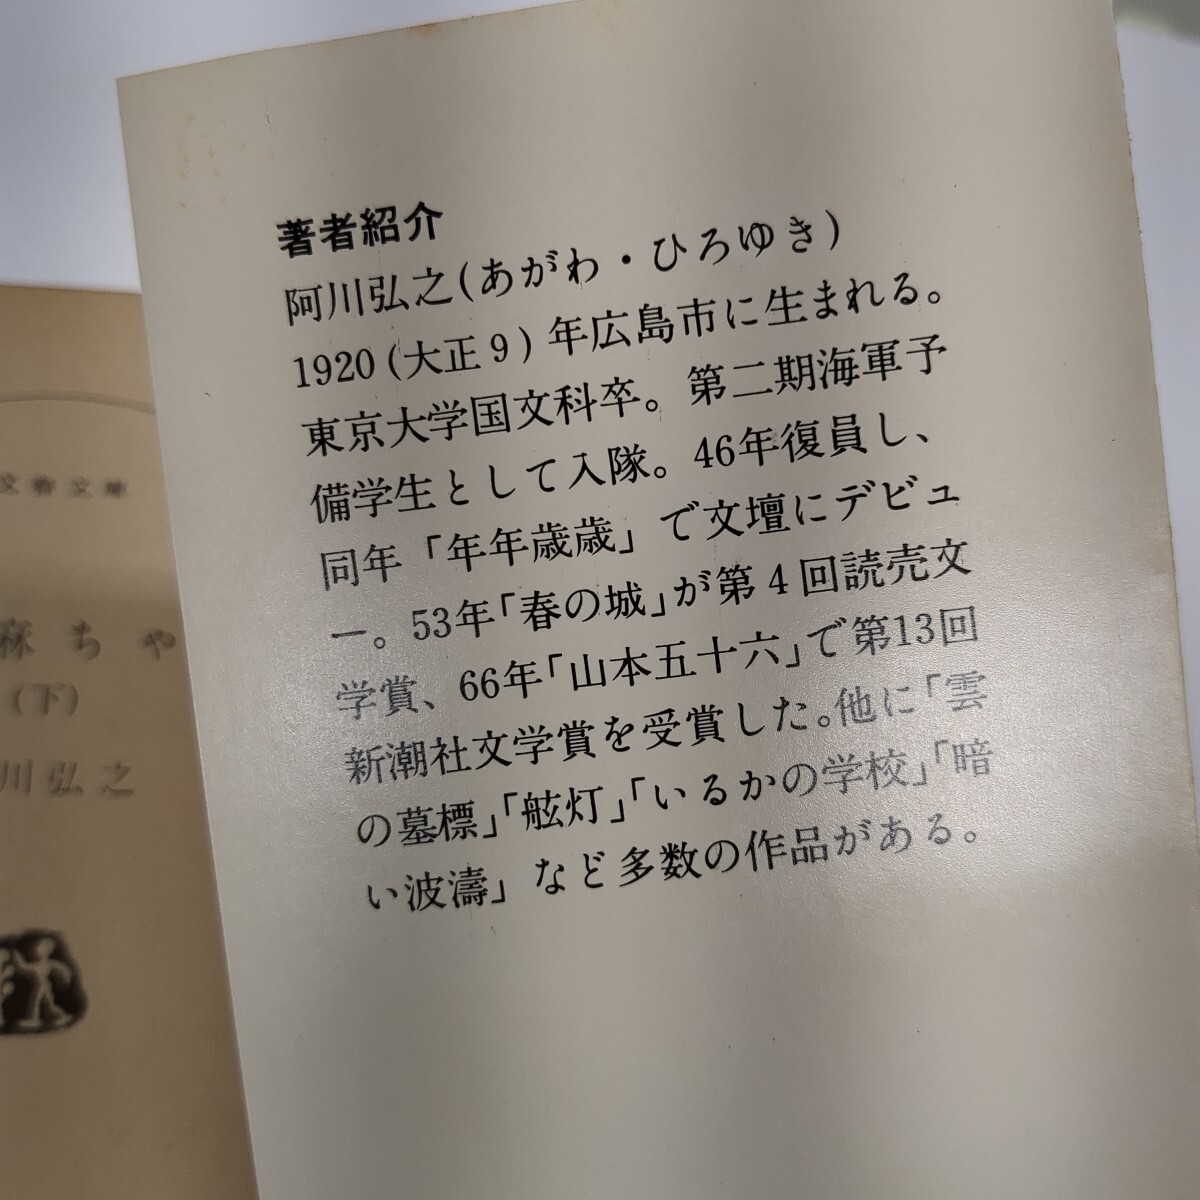 著者紹介
阿川弘之(あがわ・ひろゆき)
1920(大正9)年広島市に生まれる。
東京大学国文科卒。第二期海軍予
備学生として入隊。46年復員し、
同年「年年歳歳」で文壇にデビュ
ー。53年「春の城」が第4回読売文
学賞、66年「山本五十六」で第13回
新潮社文学賞を受賞した。他に「雲
の墓標」「舷灯」「いるかの学校」「暗
い波濤」など多数の作品がある。
文春文庫
麻ちゃ
(下)
川弘之